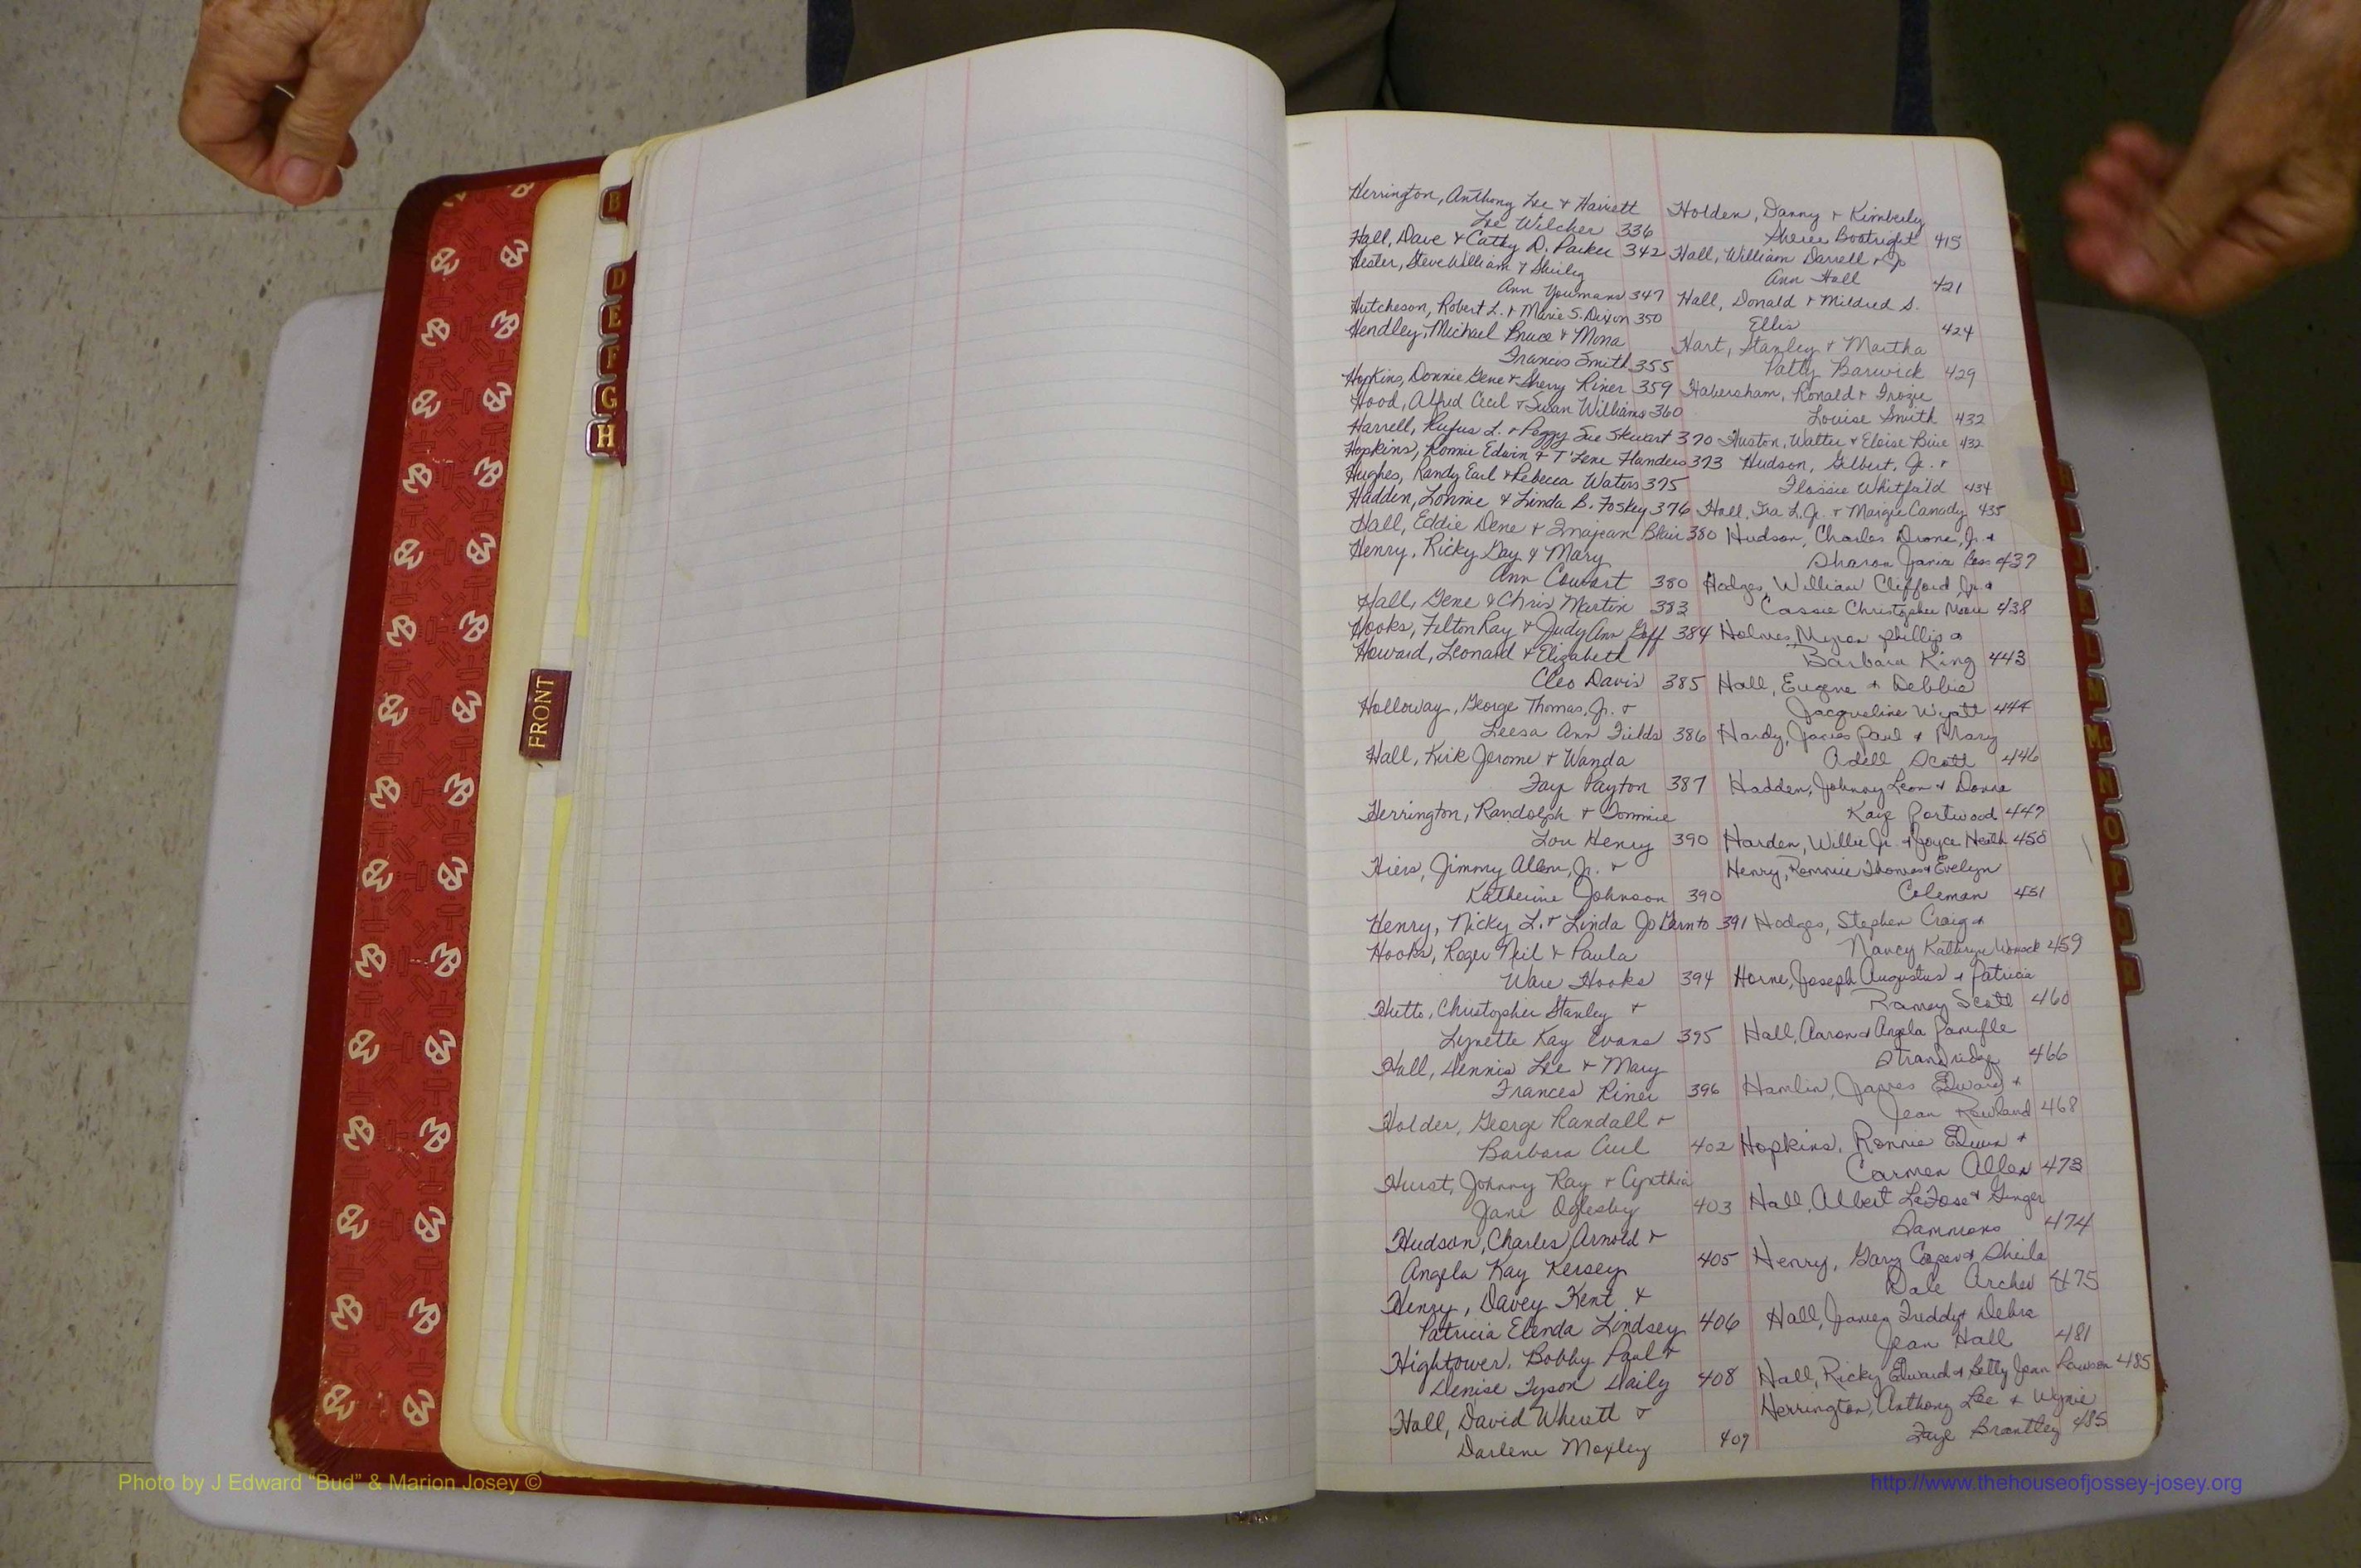 B
D
E
F
G
H
FRONT
Herrington, Anthony Lee & Harriett
Lee Wilcher 336
Hall, Dave & Cathy D. Parker 342
Hester, Steve William & Shirley
Ann Youmans 347
Hutcheson, Robert L. & Marie S. Dixon 350
Hendley, Michael Bruce & Mona
Francis Smith 355
Hopkins, Donnie Gene & Sherry Riner 359
Hood, Alfred Cecil & Susan Williams 360
Harrell, Rufus L. & Peggy Sue Stewart 370
Hopkins, Ronnie Edwin & T'Lene Flanders 373
Hughes, Randy Earl & Rebecca Waters 375
Hadden, Lonnie & Linda B. Foskey 376
Hall, Eddie Dene & Imajean Blair 380
Henry, Ricky Gay & Mary
Ann Cowart 380
Hall, Gene & Chris Martin 383
Hooks, Felton Ray & Judy Ann Goff 384
Howard, Leonard & Elizabeth
Cleo Davis 385
Holloway, George Thomas, Jr. &
Leesa Ann Fields 386
Hall, Kirk Jerome & Wanda
Faye Payton 387
Herrington, Randolph & Tommie
Lou Henry 390
Hiers, Jimmy Allen, Jr. &
Katherine Johnson 390
Henry, Nicky L. & Linda Jo Garnto 391
Hooks, Roger Neil & Paula
Ware Hooks 394
Hutto, Christopher Stanley &
Lynette Kay Evans 395
Hall, Dennis Lee & Mary
Frances Riner 396
Holder, George Randall &
Barbara Curl 402
Hurst, Johnny Ray & Cynthia
Jane Oglesby 403
Hudson, Charles Arnold &
Angela Kay Kersey 405
Henry, Davey Kent &
Patricia Elenda Lindsey 406
Hightower, Bobby Paul &
Denise Tyson Daily 408
Hall, David Wherett &
Darlene Moxley 409
Holden, Danny & Kimberly
Sheree Boatright 415
Hall, William Darrell & Jo
Ann Hall 421
Hall, Donald & Mildred S.
Ellis 424
Hart, Stanley & Martha
Patty Barwick 429
Habersham, Ronald & Frozie
Louise Smith 432
Huston, Walter & Eloise 432
Hudson, Gilbert, Jr. &
Flossie Whitfield 434
Hall, Ira L. Jr. & Margie Canady 435
Hudson, Charles Drone, Jr. &
Sharon Janice 437
Hodges, William Clifford, Jr. &
Cassie Christopher Moore 438
Holmes, Myron Phillip &
Barbara King 443
Hall, Eugene & Debbie
Jacqueline Wyatt 444
Hardy, James Paul & Mary
Adell Scott 446
Hadden, Johnny Leon & Donna
Kaye Portwood 447
Harden, Willie Jr. & Joyce Heath 450
Henry, Ronnie Thomas & Evelyn
Coleman 451
Hodges, Stephen Craig &
Nancy Kathryn Womack 459
Horne, Joseph Augustus & Patricia
Ramey Scott 460
Hall, Aaron & Angela
Strandridge 466
Hamlin, James Edward &
Jean Rowland 468
Hopkins, Ronnie Edwin &
Carmen Allen 473
Hall, Albert LaFose & Ginger
Sammons 474
Henry, Gary & Sheila
Dale Archer 475
Hall, James Freddy & Debra
Jean Hall 481
Hall, Ricky Edward & Betty Jean Lawson 485
Herrington, Anthony Lee & Wynie
Faye Brantley 485
Mc
N
O
P
Photo by J Edward "Bud" & Marion Josey ©
http://www.thehouseofjossey-josey.org